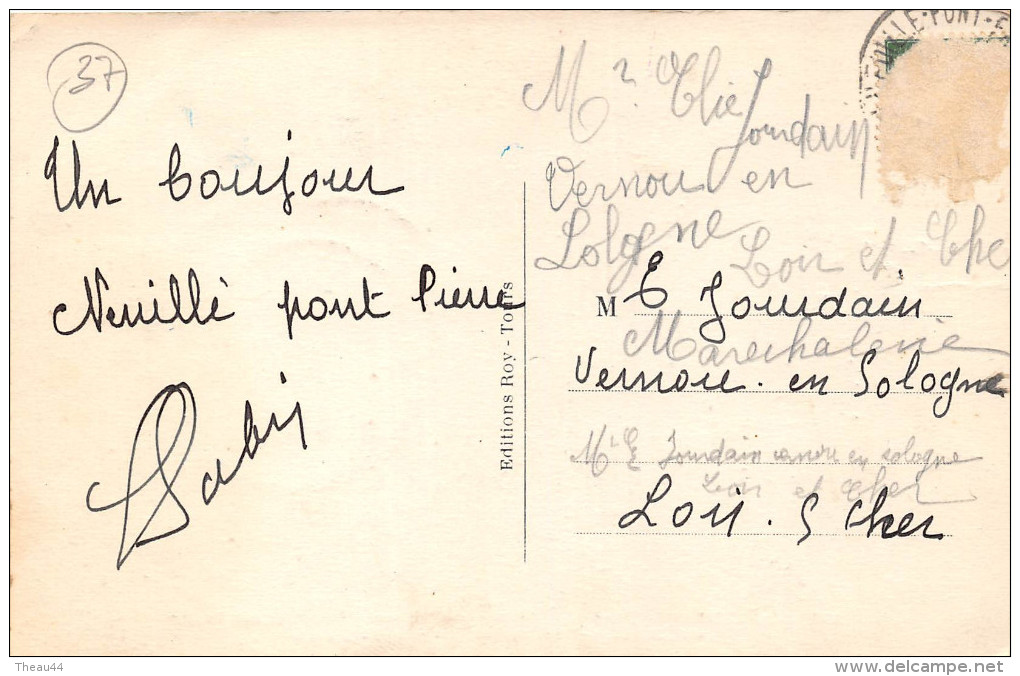 37
Un bonjour
Neuillé pont Pierre
Editions Roy - Tours
Mr Elie
Jourdain
Vernou en
Sologne
Loir et Che
M E Jourdain
Marechalerie
Vernou. en Sologne
Mr E Jourdain vernou en sologne
Loir et Cher
Loir. & Cher
Theau44
www.delcampe.net